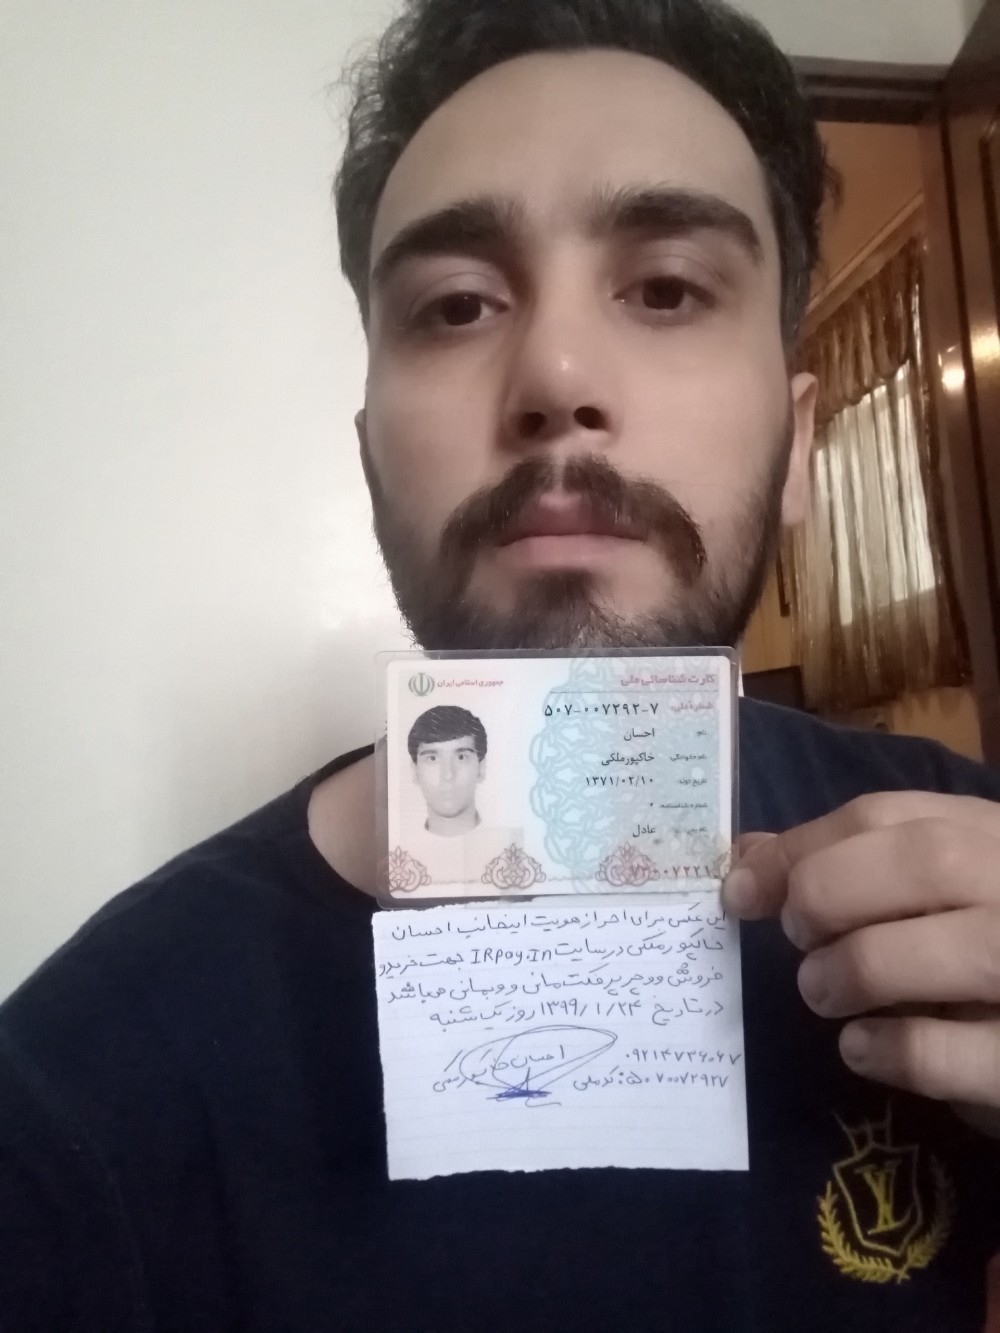 جمهوری اسلامی ایران
کارت شناسائی ملی
شماره ملی: ۵۰۷-۰۰۷۲۹۲-۷
نام: احسان
نام خانوادگی: خاکپورملکی
تاریخ تولد: ۱۳۷۱/۰۲/۱۰
شماره شناسنامه: ۰
نام پدر: عادل
این عکس برای احراز هویت اینجانب احسان
خاکپور ملکی در سایت IRpay.In جهت خرید و
فروش ووچر پرفکت مانی و وبمانی میباشد
در تاریخ ۱۳۹۹/۱/۲۴ روز یک شنبه
احسان خاکپور ملکی
۰۹۲۱۴۷۳۶۰۶۷
کد ملی: ۵۰۷۰۰۷۲۹۲۷